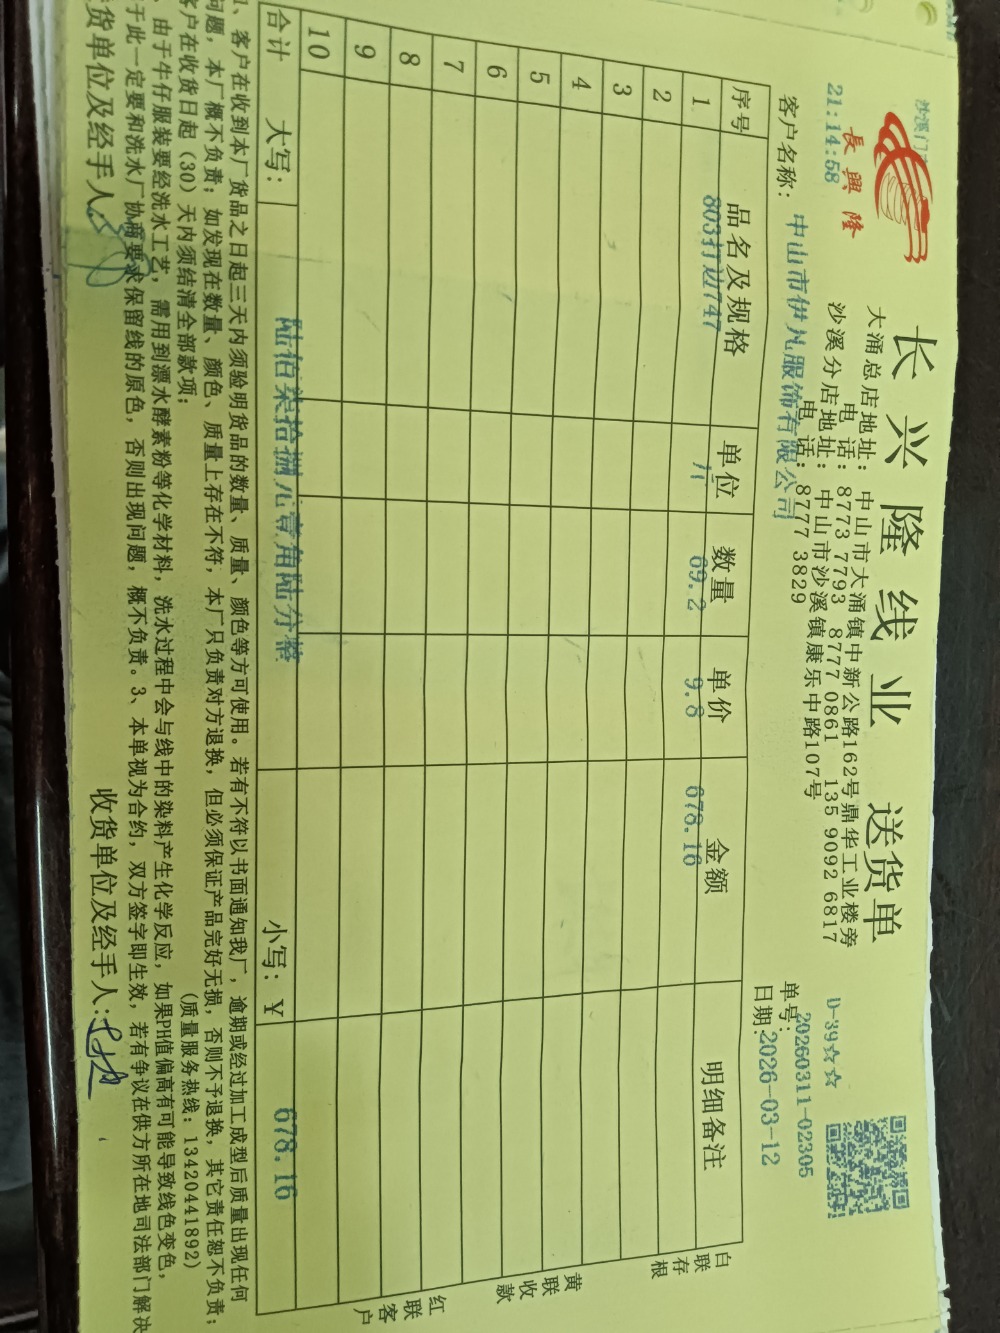 长兴隆线业 送货单
長興隆
沙溪门
21:14:58
大涌总店地址：中山市大涌镇中新公路162号鼎华工业楼旁
电 话：8773 7793 8777 0861 135 9092 6817
沙溪分店地址：中山市沙溪镇康乐中路107号
电 话：8777 3829
D-39☆☆
单号：20260311-02305
客户名称：中山市伊凡服饰有限公司
日期：2026-03-12
序号 品名及规格 单位 数量 单价 金额 明细备注
1 803打边747 个 69.2 9.8 678.16
2
3
4
5
6
7
8
9
10
合计 大写：陆佰柒拾捌元壹角陆分整 小写：￥ 678.16
白联存根
黄联收款
红联客户
1、客户在收到本厂货品之日起三天内须验明货品的数量、质量、颜色等方可使用。若有不符以书面通知我厂，逾期或经过加工成型后质量出现任何
问题，本厂概不负责；如发现在数量、颜色、质量上存在不符，本厂只负责对方退换，但必须保证产品完好无损，否则不予退换，其它责任恕不负责；
客户在收货日起（30）天内须结清全部款项； （质量服务热线：13420441892）
由于牛仔服装要经洗水工艺，需用到漂水酵素粉等化学材料，洗水过程中会与线中的染料产生化学反应，如果PH值偏高有可能导致线色变色，
于此一定要和洗水厂协商要求保留线的原色，否则出现问题，概不负责。3、本单视为合约，双方签字即生效，若有争议在供方所在地司法部门解决
货单位及经手人： 收货单位及经手人：